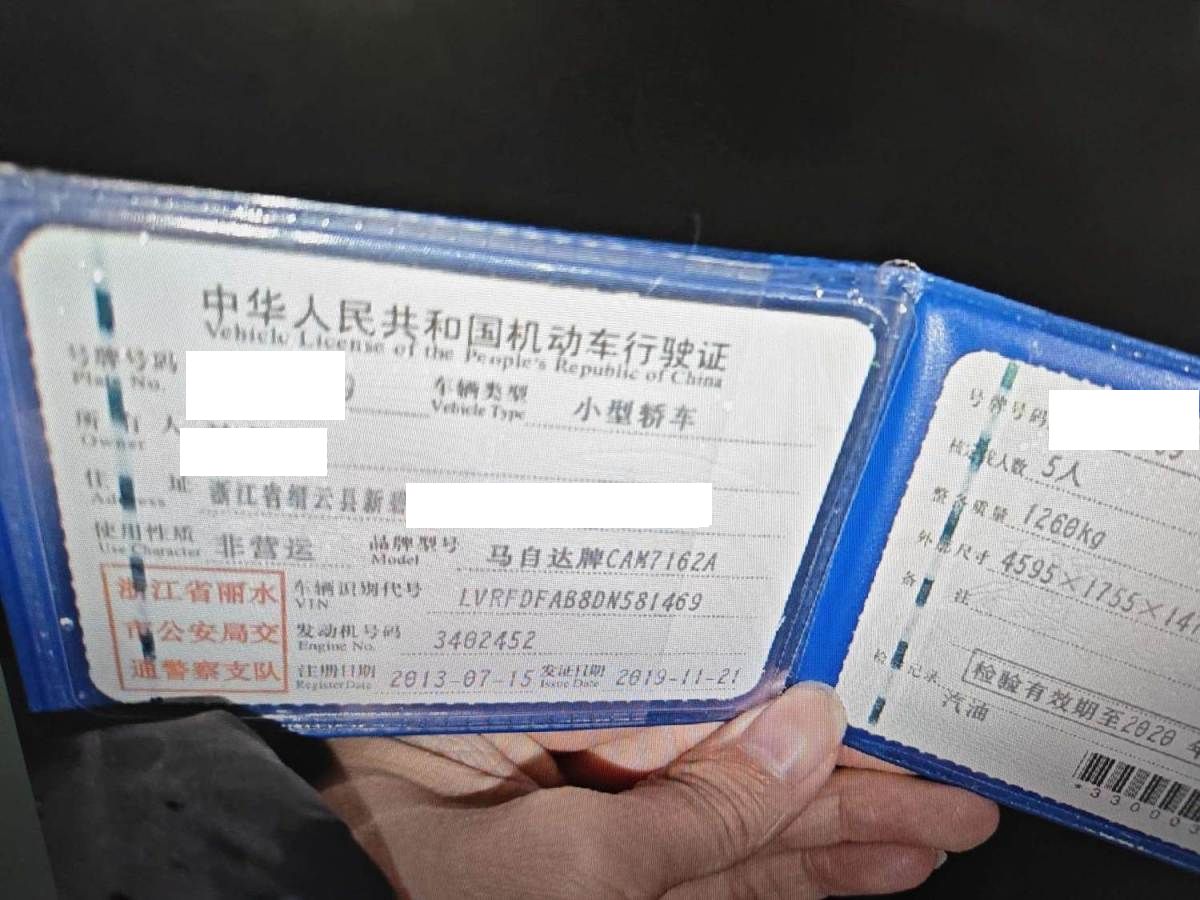 中华人民共和国机动车行驶证
Vehicle License of the People's Republic of China
号牌号码
Plate No.
车辆类型 小型轿车
Vehicle Type
所有人
Owner
住址 浙江省缙云县新碧
Address
使用性质 非营运 品牌型号 马自达牌CAM7162A
Use Character Model
浙江省丽水
市公安局交
通警察支队
车辆识别代号 LVRFDFAB8DN581469
VIN
发动机号码 3402452
Engine No.
注册日期 2013-07-15 发证日期 2019-11-21
Register Date Issue Date
号牌号码
核定载人数 5人
整备质量 1260kg
外廓尺寸 4595×1755×14
备注
检验记录
检验有效期至2020
汽油
*33000